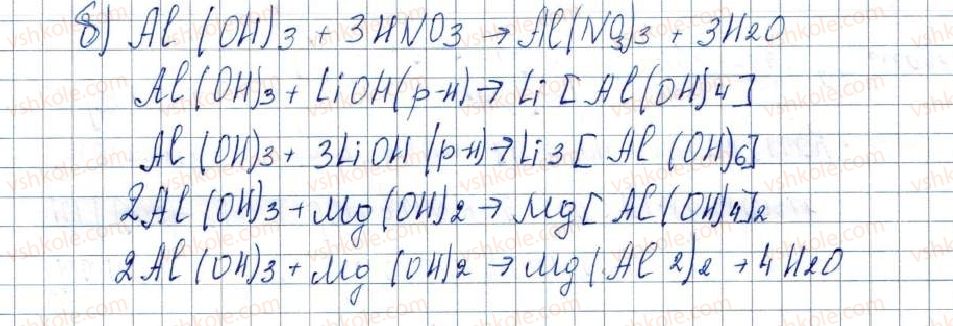 в) Al(OH)3 + 3HNO3 → Al(NO3)3 + 3H2O
Al(OH)3 + LiOH(р-н) → Li[Al(OH)4]
Al(OH)3 + 3LiOH(р-н) → Li3[Al(OH)6]
2Al(OH)3 + Mg(OH)2 → Mg[Al(OH)4]2
2Al(OH)3 + Mg(OH)2 → Mg(Al2)2 + 4H2O